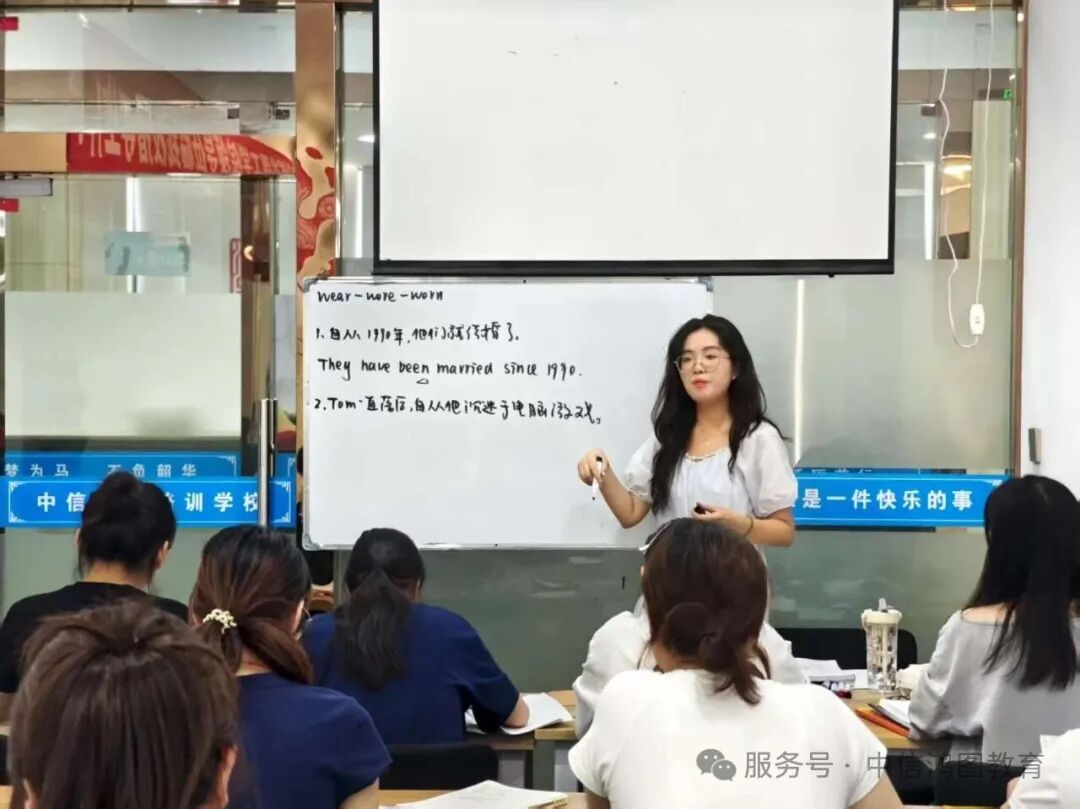 wear-wore-worn
1.自从1990年,他们就结婚了。
They have been married since 1990.
2.Tom一直落后,自从他沉迷于电脑游戏。
梦为马 不负韶华
中信 培训学校
是一件快乐的事
服务号·中信鸿图教育